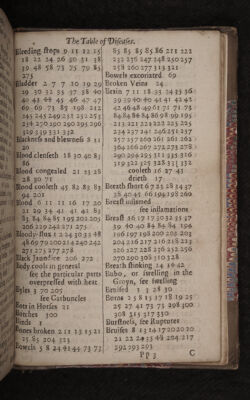 The Table of Diseases.
Bleeding stops 9 11 12 15
18 22 24 26 30 31 38
39 48 58 73 75 79 85
275
Bladder 2 7 7 10 19 29
29 30 32 35 37 38 40
40 43 44 45 46 47 47
69 69 73 85 198 212
245 245 249 251 252 253
254 270 290 290 295 296
329 329 331 332
Blackness and blewness 8 11
31
Blood clenseth 18 30 40 83
86
Blood congealed 21 23 28
28 30 71
Blood cooleth 45 82 83 83
94 201
Blood 6 11 11 16 17 20
21 29 34 41 41 42 83
83 84 84 85 199 202 205
206 219 242 271 275
Bloody-flux 1 2 24 30 33 48
48 66 79 200 214 240 242
271 275 277 278
Black Jaundice 206 272
Body cools in general
see the particular parts
overpressed with heat
Byles 3 70 205
see Carbuncles
Bots in Horses 21
Botches 300
Birds 1
Bones broken 2 11 13 15 21
25 85 204 323
Bowels 5 8 24 41 44 73 73
85 85 85 85 86 211 222
232 236 247 248 250 257
258 260 277 313 321
Bowels excoriated 69
Broken Veins 24
Brain 7 11 18 33 34 35 36
39 39 40 40 41 41 42 42
42 46 48 49 61 71 71 73
84 84 84 84 89 98 190 195
213 221 224 222 225 225
234 237 241 246 254 257
257 257 260 261 261 263
264 266 267 272 273 278
290 294 295 311 313 316
319 322 325 328 333 333
cooleth 16 27 43
drieth 17
Breath short 6 7 25 28 34 37
38 40 45 66 194 198 206
Breast inflamed
see inflamations
Breast 16 17 17 30 32 35 37
39 40 40 84 84 84 194
196 197 198 200 202 202
204 216 217 216 218 223
226 227 228 236 252 256
270 290 308 310 328
Breath stinking 14 19 42
Bubo, or swelling in the
Groyn, see swelling
Bruised 1 3 28 30
Burns 2 5 8 15 17 18 19 25
25 27 41 73 73 298 300
308 315 317 330
Burstness, see Ruptures
Bruises 8 13 14 17 20 20 20
21 22 24 33 48 204 217
292 293 293
Pp 3
C